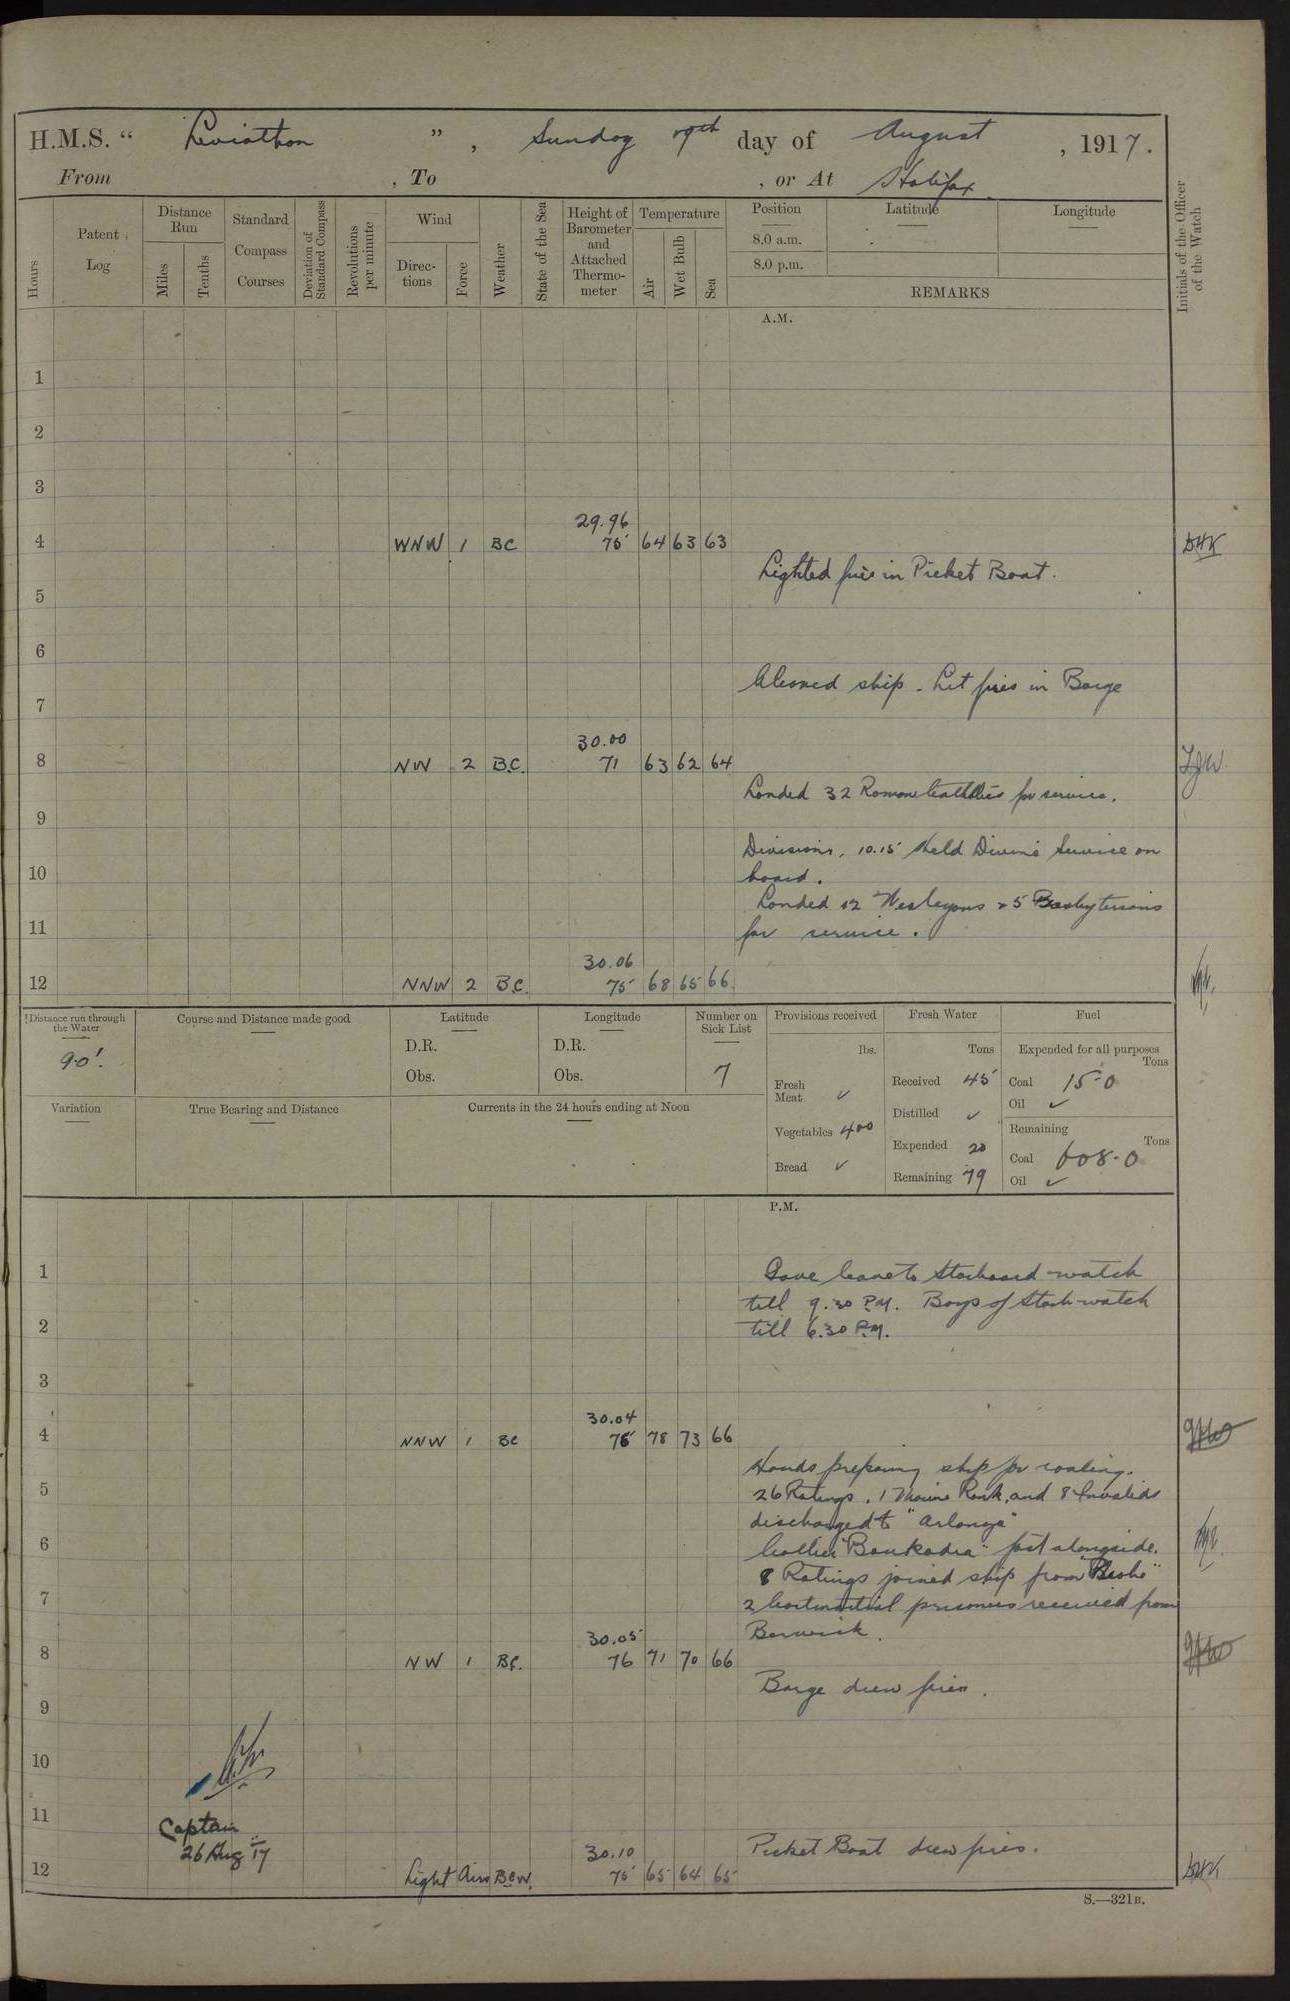 H.M.S. “ Leviathan ” , Sunday day of August , 1917.
From , To , or At Halifax
Hours
Patent Log
Distance Run
Miles
Tenths
Standard Compass Courses
Deviation of Standard Compass
Revolutions per minute
Wind
Directions
Force
Weather
State of the Sea
Height of Barometer and Attached Thermometer
Temperature
Air
Wet Bulb
Sea
Position Latitude Longitude
8.0 a.m.
8.0 p.m.
REMARKS
Initials of the Officer of the Watch
A.M.
1
2
3
29.96
4 WNW 1 BC 75 64 63 63 DHK
Lighted fires in Picket Boat.
5
6
Cleaned ship. Lit fires in Barge
7
30.00
8 NW 2 B.C. 71 63 62 64
Landed 32 Roman Catholics for service.
9
Divisions, 10.15 Held Divine Service on
10 board.
Landed 12 Wesleyans & 5 Presbyterians
11 for service.
30.06
12 NNW 2 B.C. 75 68 65 66
Distance run through the Water
90'.
Course and Distance made good
Latitude
D.R.
Obs.
Longitude
D.R.
Obs.
Number on Sick List
7
Provisions received
lbs.
Fresh Meat ✓
Vegetables 400
Bread ✓
Fresh Water
Tons
Received 45
Distilled ✓
Expended 20
Remaining 79
Fuel
Expended for all purposes
Tons
Coal 15-0
Oil ✓
Remaining
Tons
Coal 608-0
Oil ✓
Variation
True Bearing and Distance
Currents in the 24 hours ending at Noon
P.M.
1 Gave leave to Starboard watch
till 9.30 P.M. Boys of Starb watch
2 till 6.30 P.M.
3
30.04
4 NNW 1 BC 75 78 73 66
Hands preparing ship for coaling.
5 26 Ratings, 1 Marine Rank, and 8 Invalids
discharged to "Arlanza"
6 Collier "Boukadra" fast alongside.
8 Ratings joined ship from
7 2 Courtmartial prisoners received from
30.05 Berwick.
8 NW 1 BC. 76 71 70 66
Barge drew fires.
9
10
11
Captain
26 Aug 17
30.10 Picket Boat drew fires.
12 Light Airs BCW. 75 65 64 65 DHK
S.—321B.